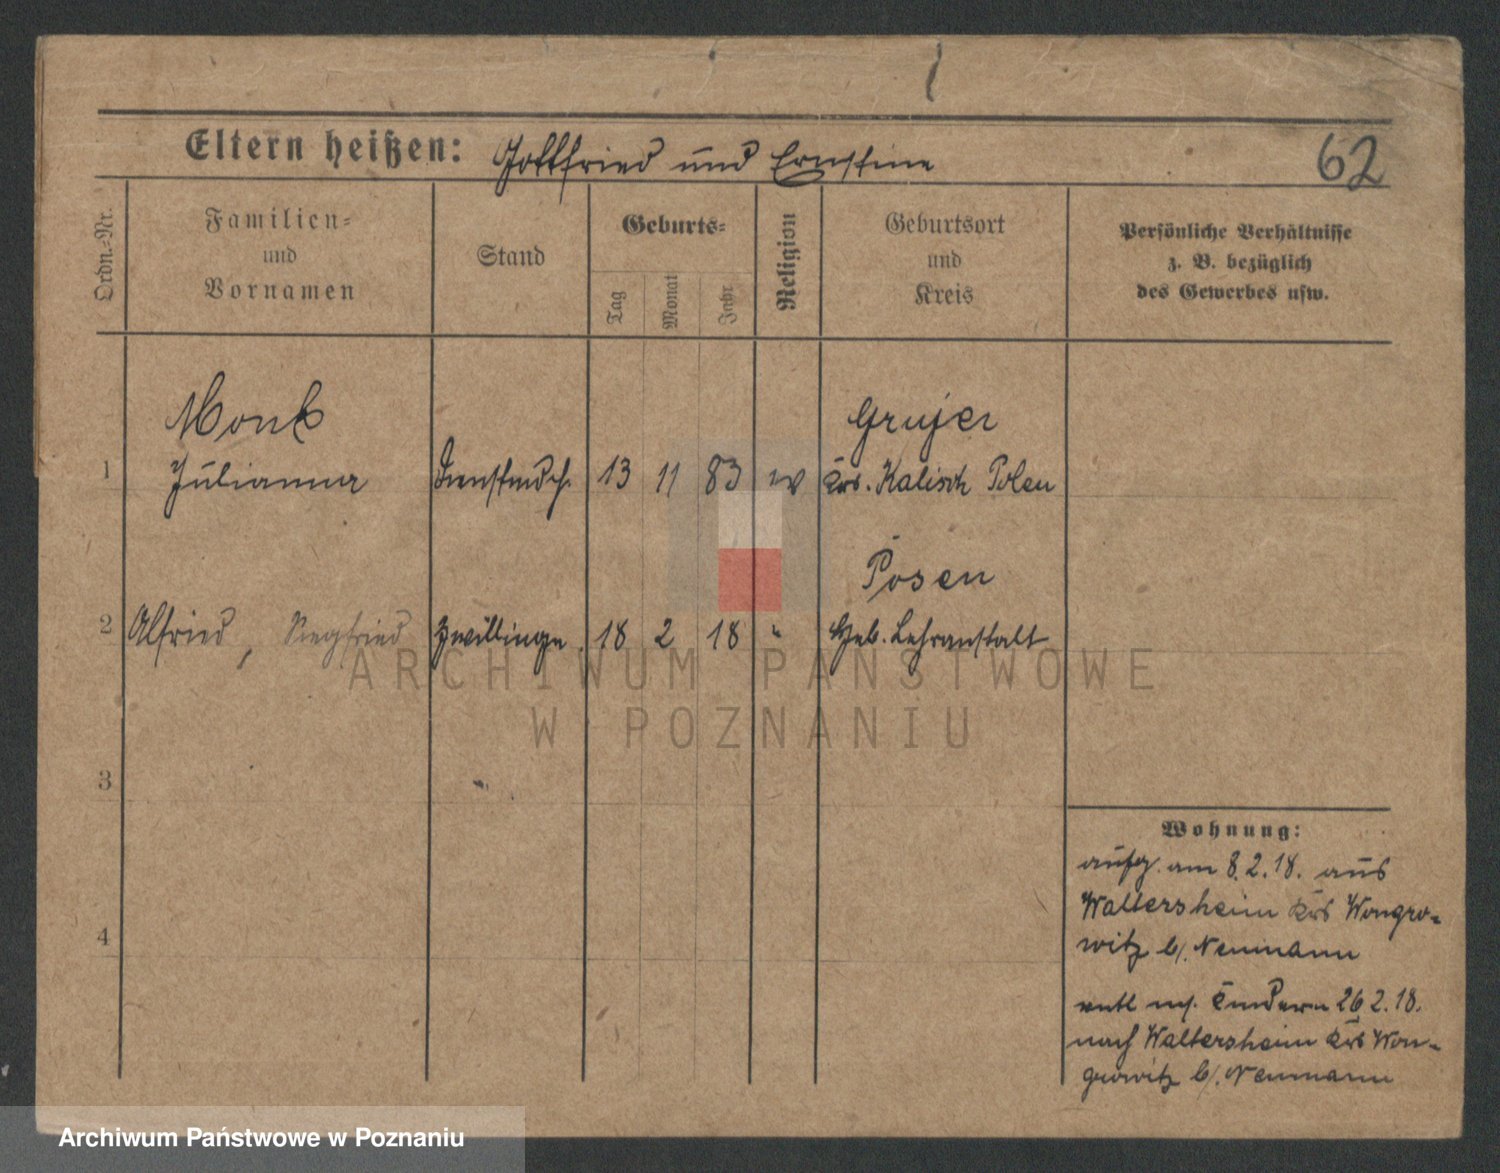 Eltern heißen: Gottfried und Ernstine
62
Ordn.-Nr.
Familien-
und
Vornamen
Stand
Geburts-
Tag
Monat
Jahr
Religion
Geburtsort
und
Kreis
Persönliche Verhältnisse
z. B. bezüglich
des Gewerbes usw.
Monk
1 Julianna Dienstmdch. 13 11 83 ev Krs. Kalisch Polen
Posen
2 Alfried, Siegfried Zwillinge. 18 2 18 " Heb. Lehranstalt
3
4
Wohnung:
aufg. am 8.2.18. aus
Waltersheim Krs Wongro-
witz b/. Neumann
entl m. Kindern 26 2.18.
nach Waltersheim Krs Won-
growitz b/. Neumann
ARCHIWUM PAŃSTWOWE
W POZNANIU
Archiwum Państwowe w Poznaniu